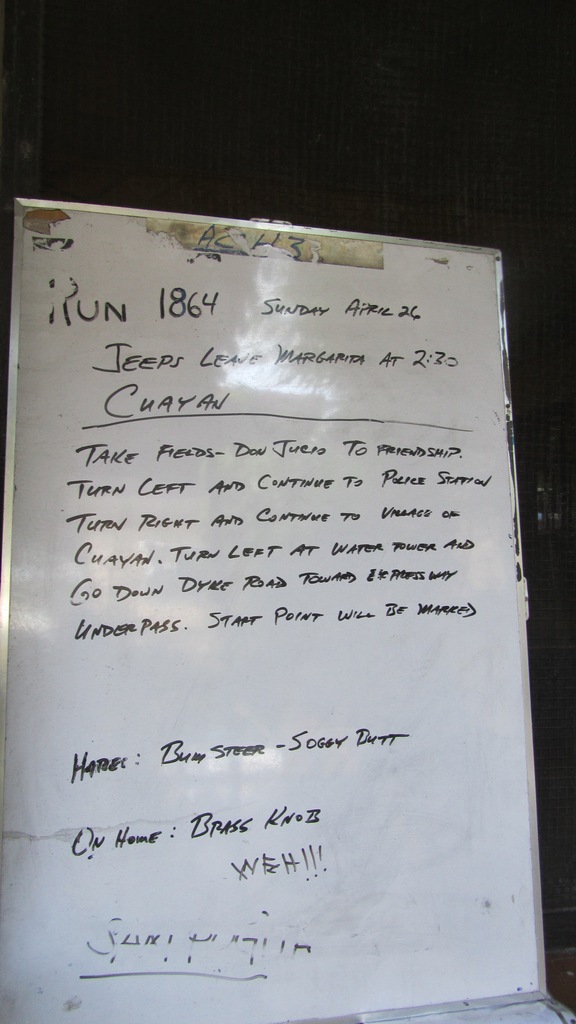 ACH3
RUN 1864 SUNDAY APRIL 26
JEEPS LEAVE MARGARITA AT 2:30
CUAYAN
TAKE FIELDS - DON JUICO TO FRIENDSHIP.
TURN LEFT AND CONTINUE TO POLICE STATION
TURN RIGHT AND CONTINUE TO VILLAGE OF
CUAYAN. TURN LEFT AT WATER TOWER AND
GO DOWN DYKE ROAD TOWARD EXPRESSWAY
UNDERPASS. START POINT WILL BE MARKED
HARES: BUM STEER - SOGGY BUTT
ON HOME: BRASS KNOB
WEH!!!